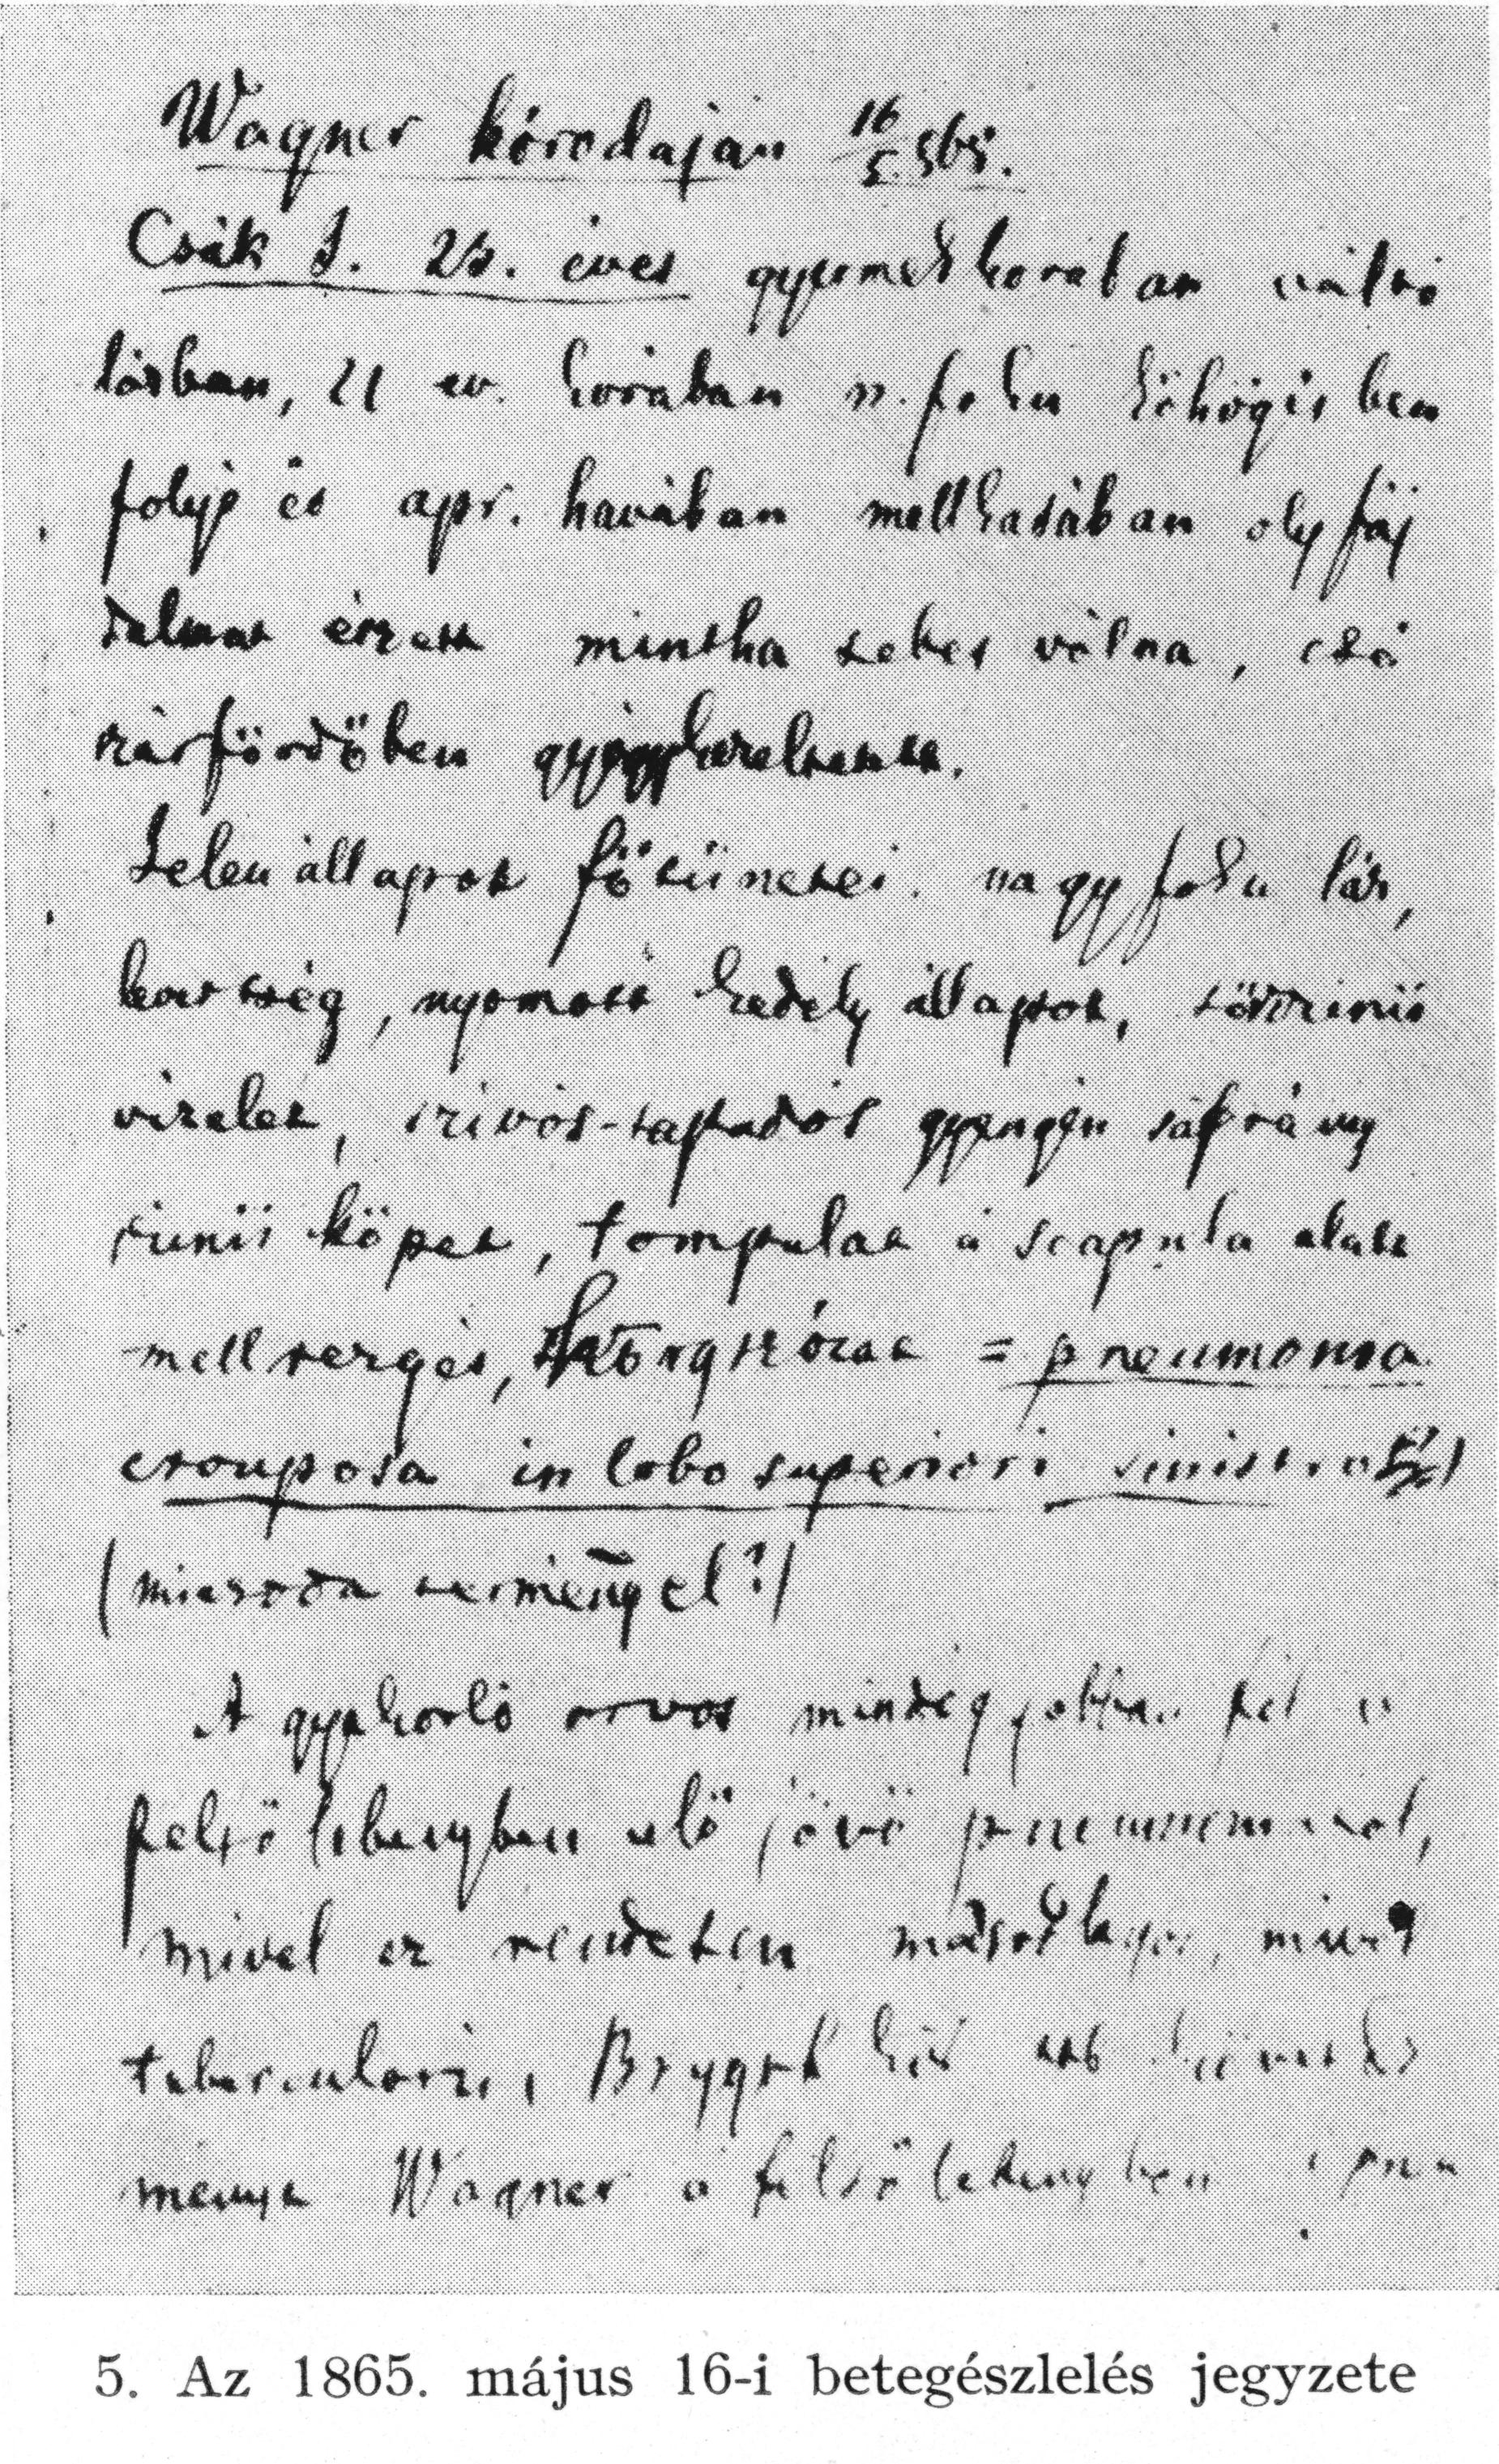 Wagner kórodaján 16/5. 865.
Csák J. 25. éves gyermekkorában váltó
lázban, 21 év. korában n. foku köhögésben
folyó év apr. havában mellkasában oly fáj
dalmat érzett mintha sebes vólna, csá
szárfördőben gyógykezeltetett.
Jelen állapot fő tünetei. nagy foku láz,
levertség, nyomott kedély állapot, sörszinü
vizelet, szivós-tapadós gyengén sáfrány
szinü köpet, tompulat a scapula alatt
mellrezgés, hörgszózat = pneumonia
crouposa in lobo superiori sinistro
(micsoda terménÿel?)
A gyakorló orvos mindég jobban fél a
felső lebenyben elő jövő pneumoniaról,
mivel ez rendesen másodlagos, mint
tuberculosis, Brygth kór
ménye Wagner a felső lebenyben
5. Az 1865. május 16-i betegészlelés jegyzete